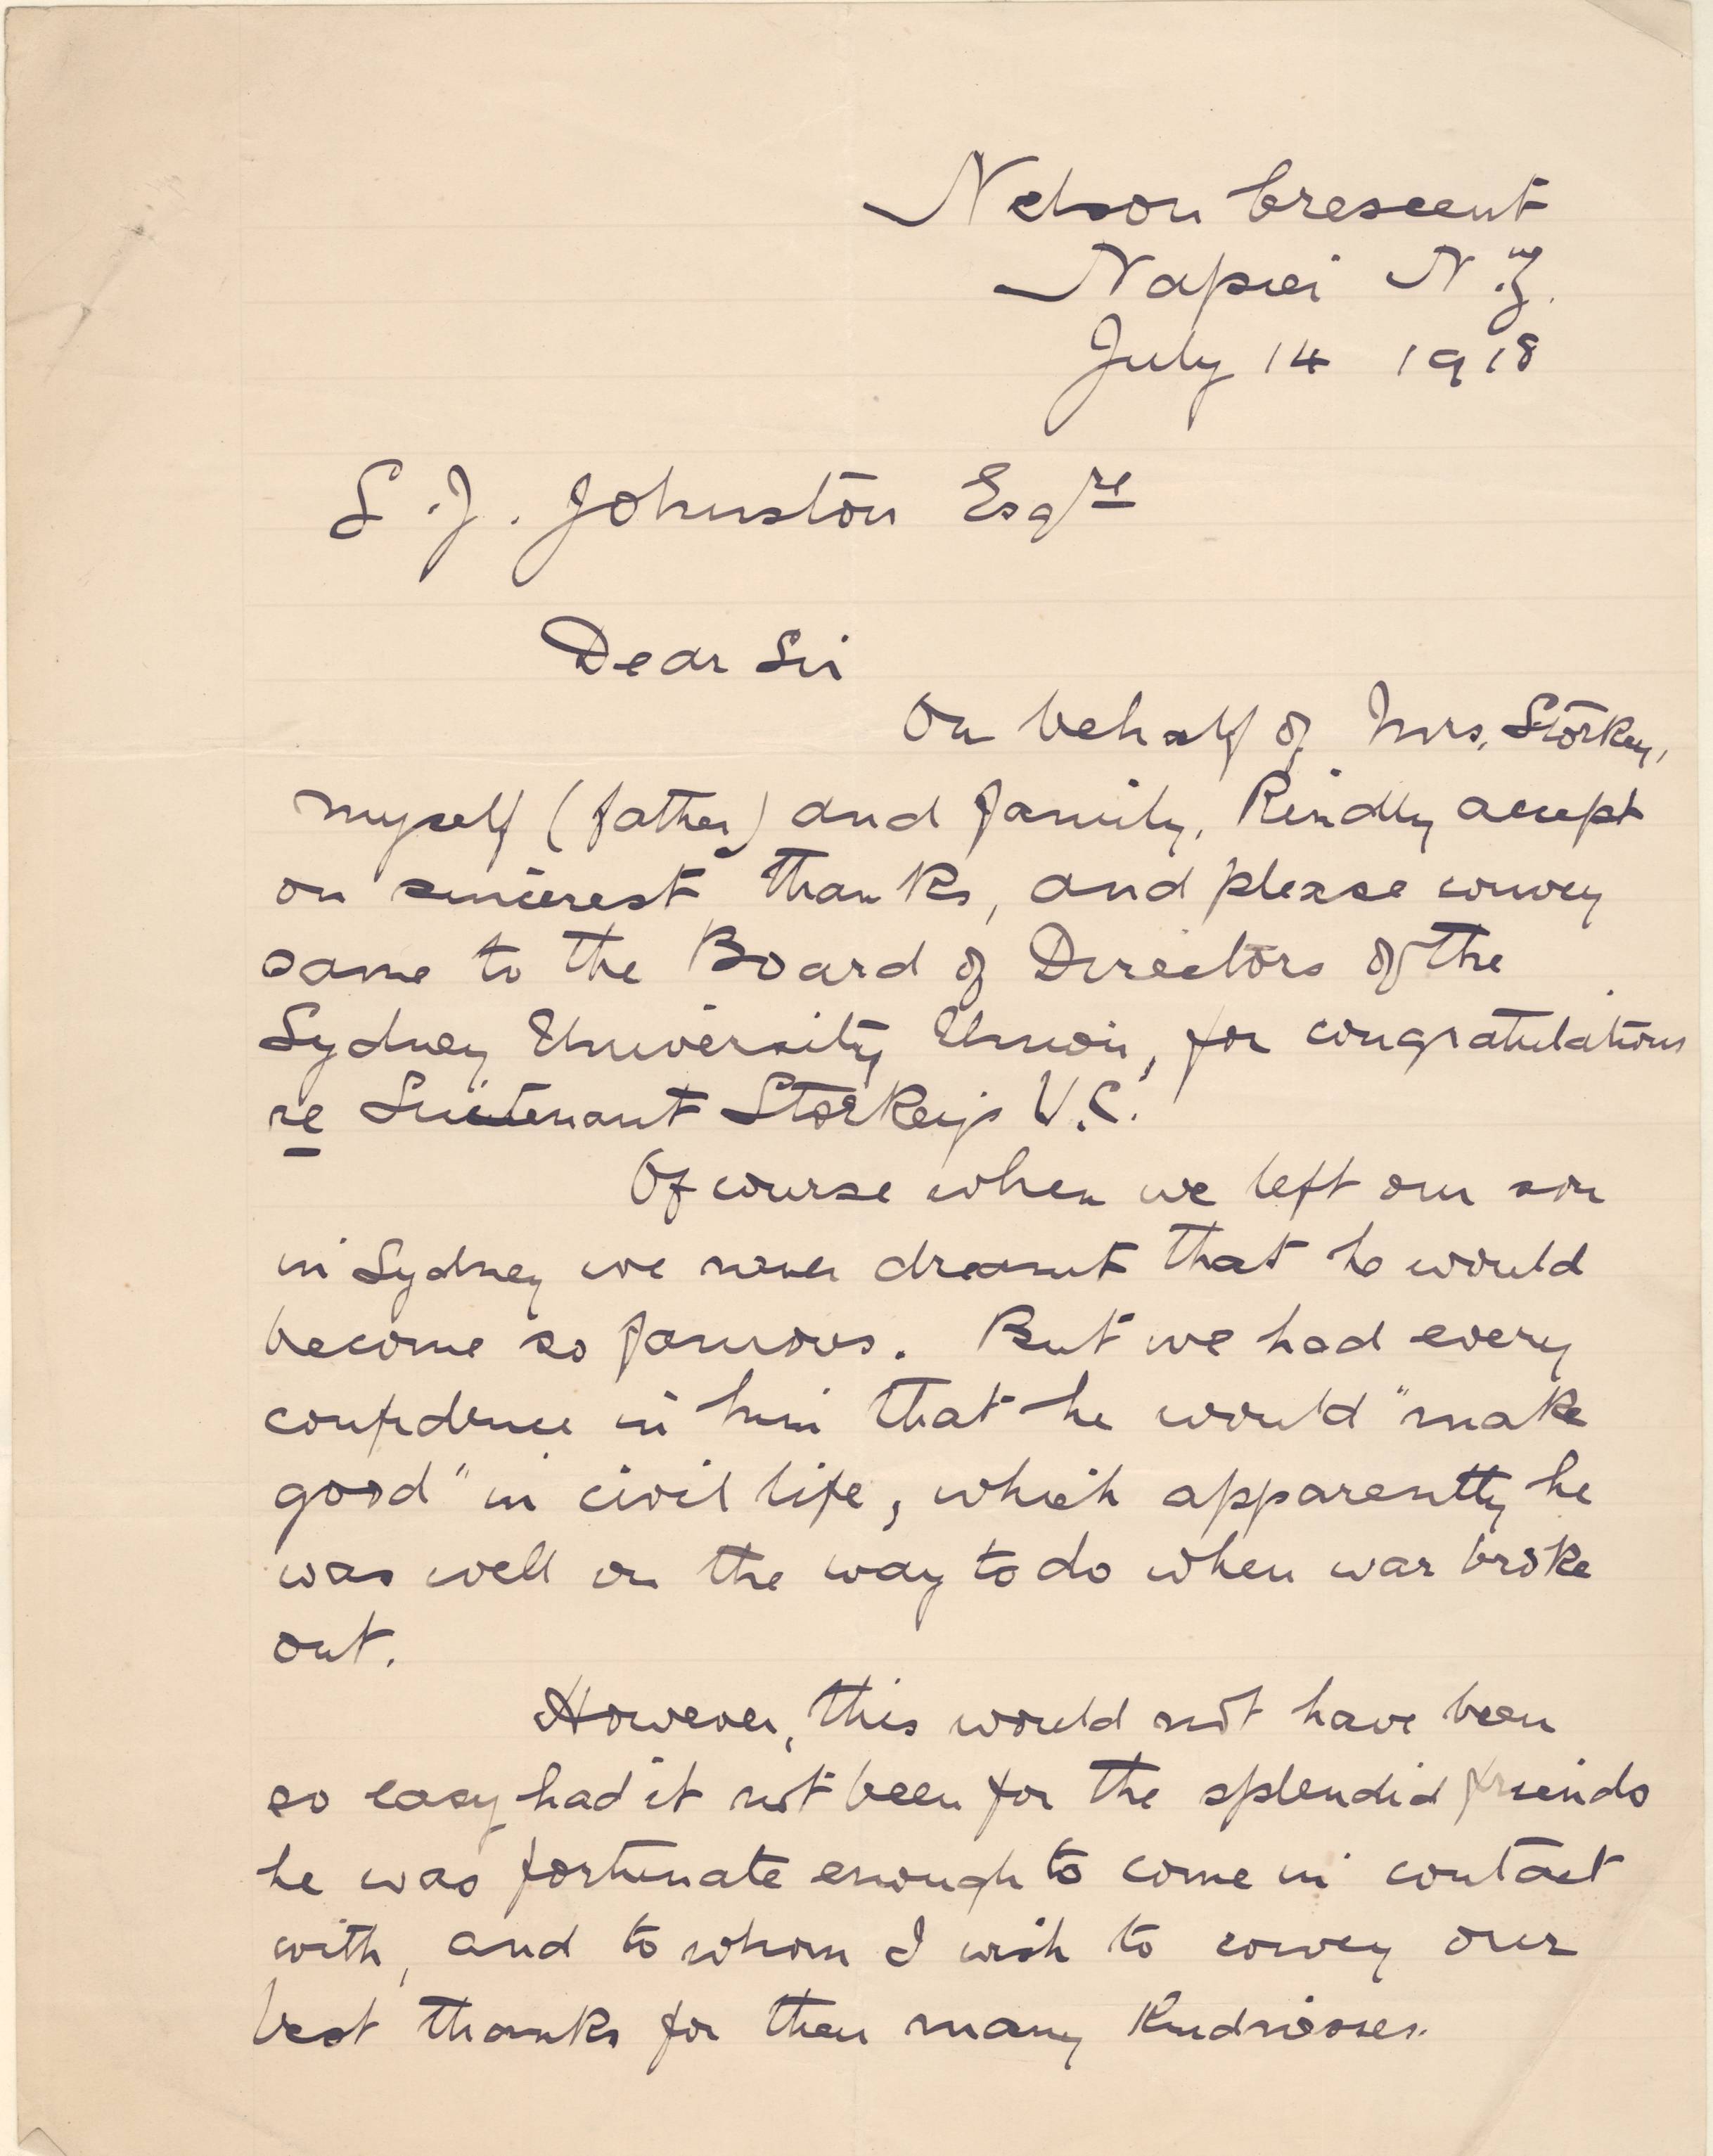 Nelson Crescent
Napier N.Z.
July 14 1918
S. J. Johnston Esqre
Dear Sir
On behalf of Mrs. Storkey,
myself (father) and family, Kindly accept
our sincerest thanks, and please convey
same to the Board of Directors of the
Sydney University Union, for congratulations
re Lieutenant Storkey's V.C.
Of course when we left our son
in Sydney we never dreamt that he would
become so famous. But we had every
confidence in him that he would "make
good" in civil life, which apparently he
was well on the way to do when war broke
out.
However, this would not have been
so easy had it not been for the splendid friends
he was fortunate enough to come in contact
with, and to whom I wish to convey our
best thanks for their many Kindnesses.